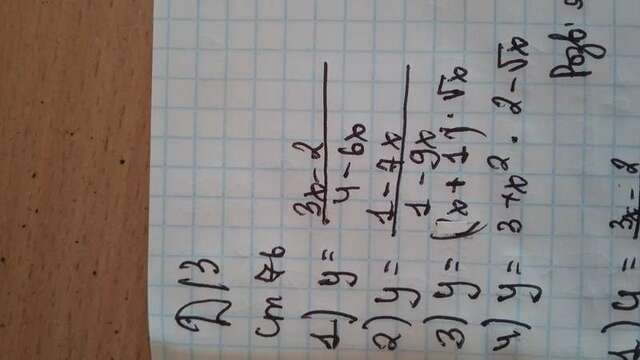 Д/З
ст 76
1) y = 3x - 2 / 4 - 6x
2) y = 1 - 7x / 1 - 9x
3) y = (x + 1) · √x
4) y = 3 + x² · 2 - √x
1) y = 3x - 2